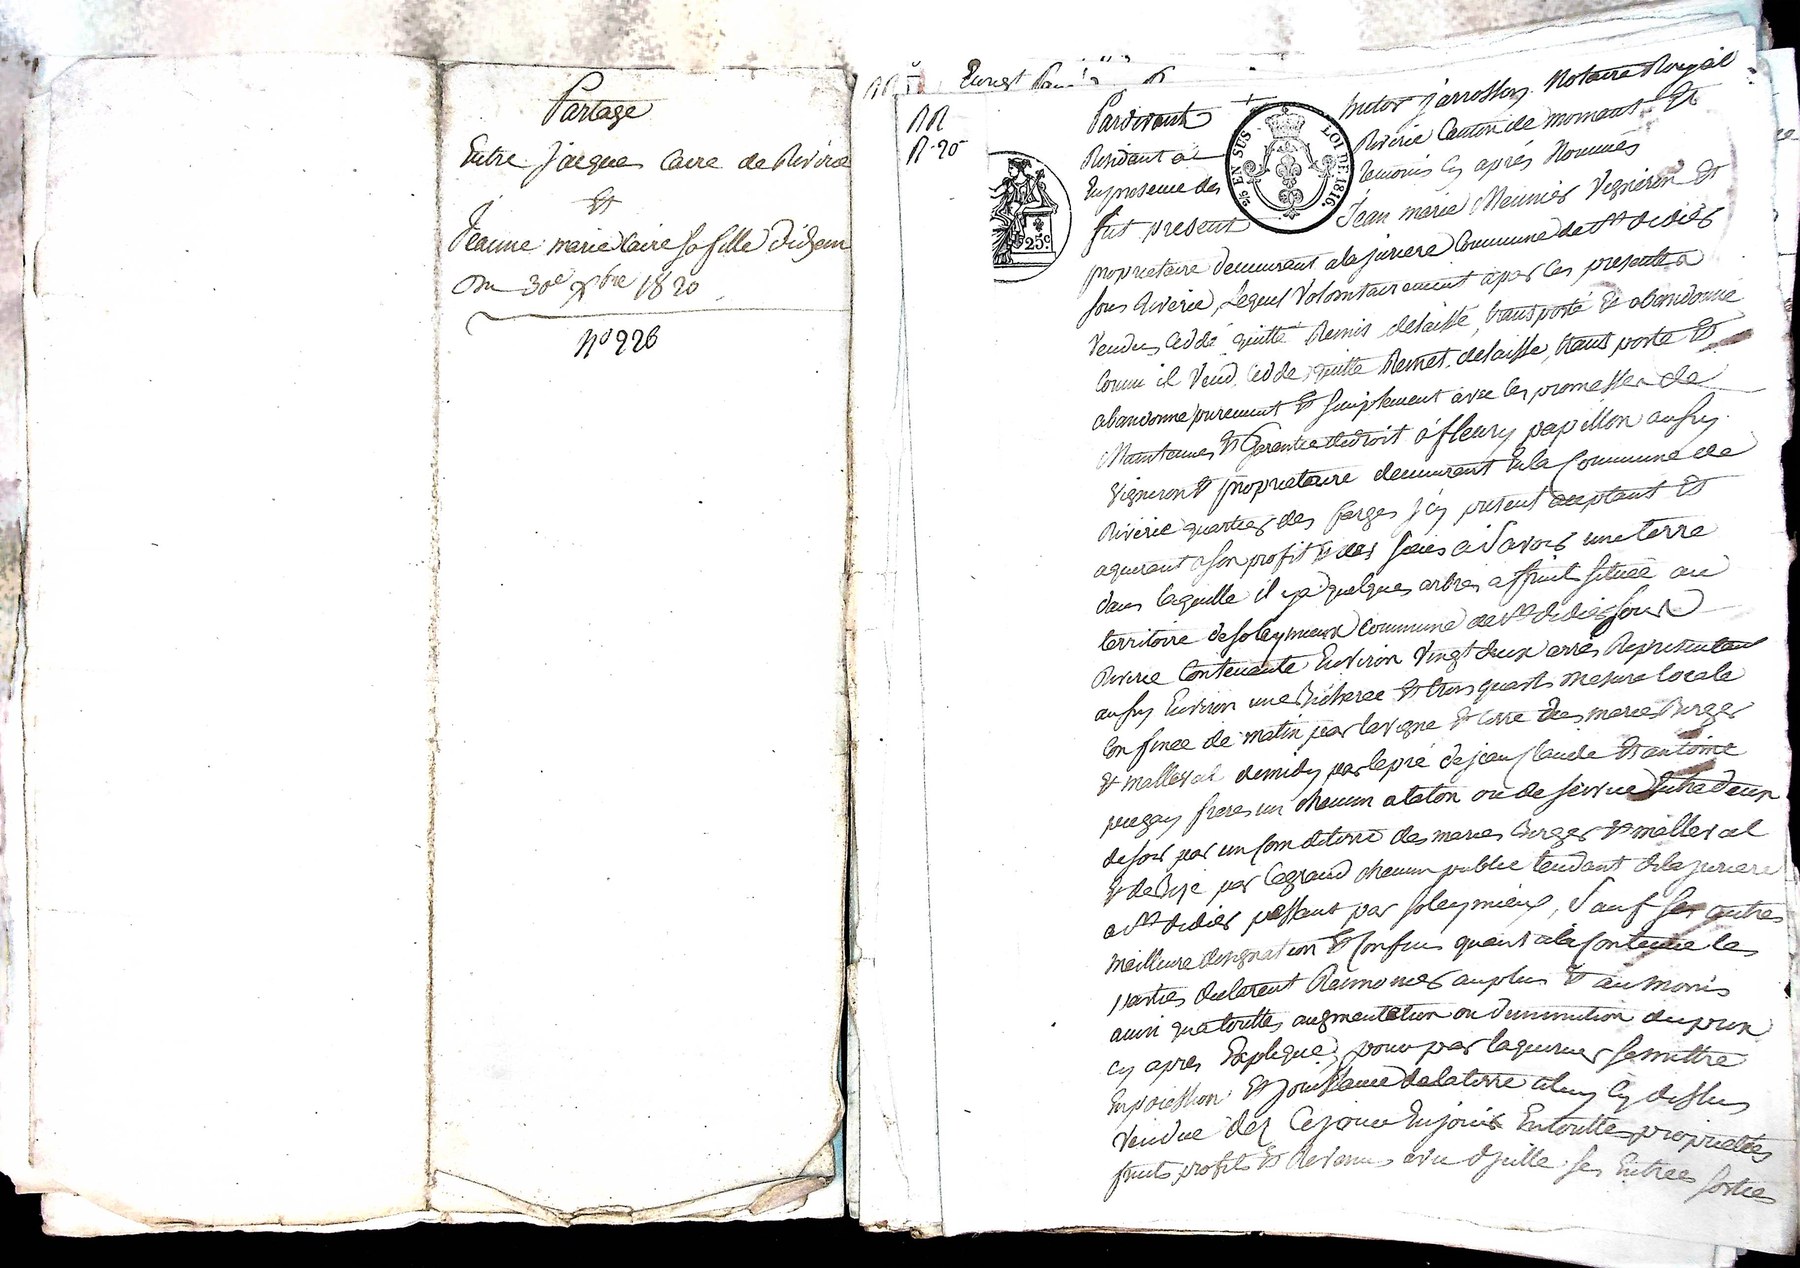 Partage
Entre Jacques Caire de Riverie
Et
Jeanne marie Caire sa fille
du 30e Xbre 1820
No 226
Enregt
NR
R. 20
Pardevant Jarrosson Notaire Royal
Résidant à Riverie Canton de mornant Et
En presence des temoins cy aprés Nommés
fut present Jean marie Meunier Vigneron Et
25 EN SUS LOI DE 1816
25c.
proprietaire demeurant a la juriere Commune de St didier
sous Riverie, Lequel Volontairement a par ces presentes
Vendu, Cédé quitté Remis delaissé, transporté Et abandonné
Comme il Vend, Cede, quitte Remet, delaisse, transporte Et
abandonne purement Et simplement avec les promesses de
Maintenue Et Garentie de droit à fleury papillon aussy
Vigneron Et proprietaire demeurant En la Commune de
Riverie quartier des farges icy present acceptant Et
aquerant a son profit Et des siens a Savoir une terre
dans laquelle il y a quelques arbres a fruit située au
territoire de soleymieux commune de St didier sous
Riverie Contenante Environ Vingt deux arres Representant
aussy Environ une Bicherée Et trois quarts mesure locale
Confinée de matin par la vigne Et terre des maries Burger
Et malleval de midy par le pré de jean Claude Et antoine
freres un chemin a talon ou de service Entre deux
de soir par un Coin de terre des maries Burger Et malleval
Et de Bize par le grand chemin public tendant de la juriere
a St didier passant par soleymieux, Sauf ses autres
meilleure designation Et Confins quant a la Contenue les
parties declarent Renoncer au plus Et au moins
ainsi qu'a toutte augmentation ou diminution du prix
cy apres Expliqué, pour par laquereur se mettre
En possession Et jouissance de la terre a luy cy dessus
Vendue dez Ce jour En jouir En toutte proprietée
fruits profits Et Revenus avec d'icelle ses Entrées sorties